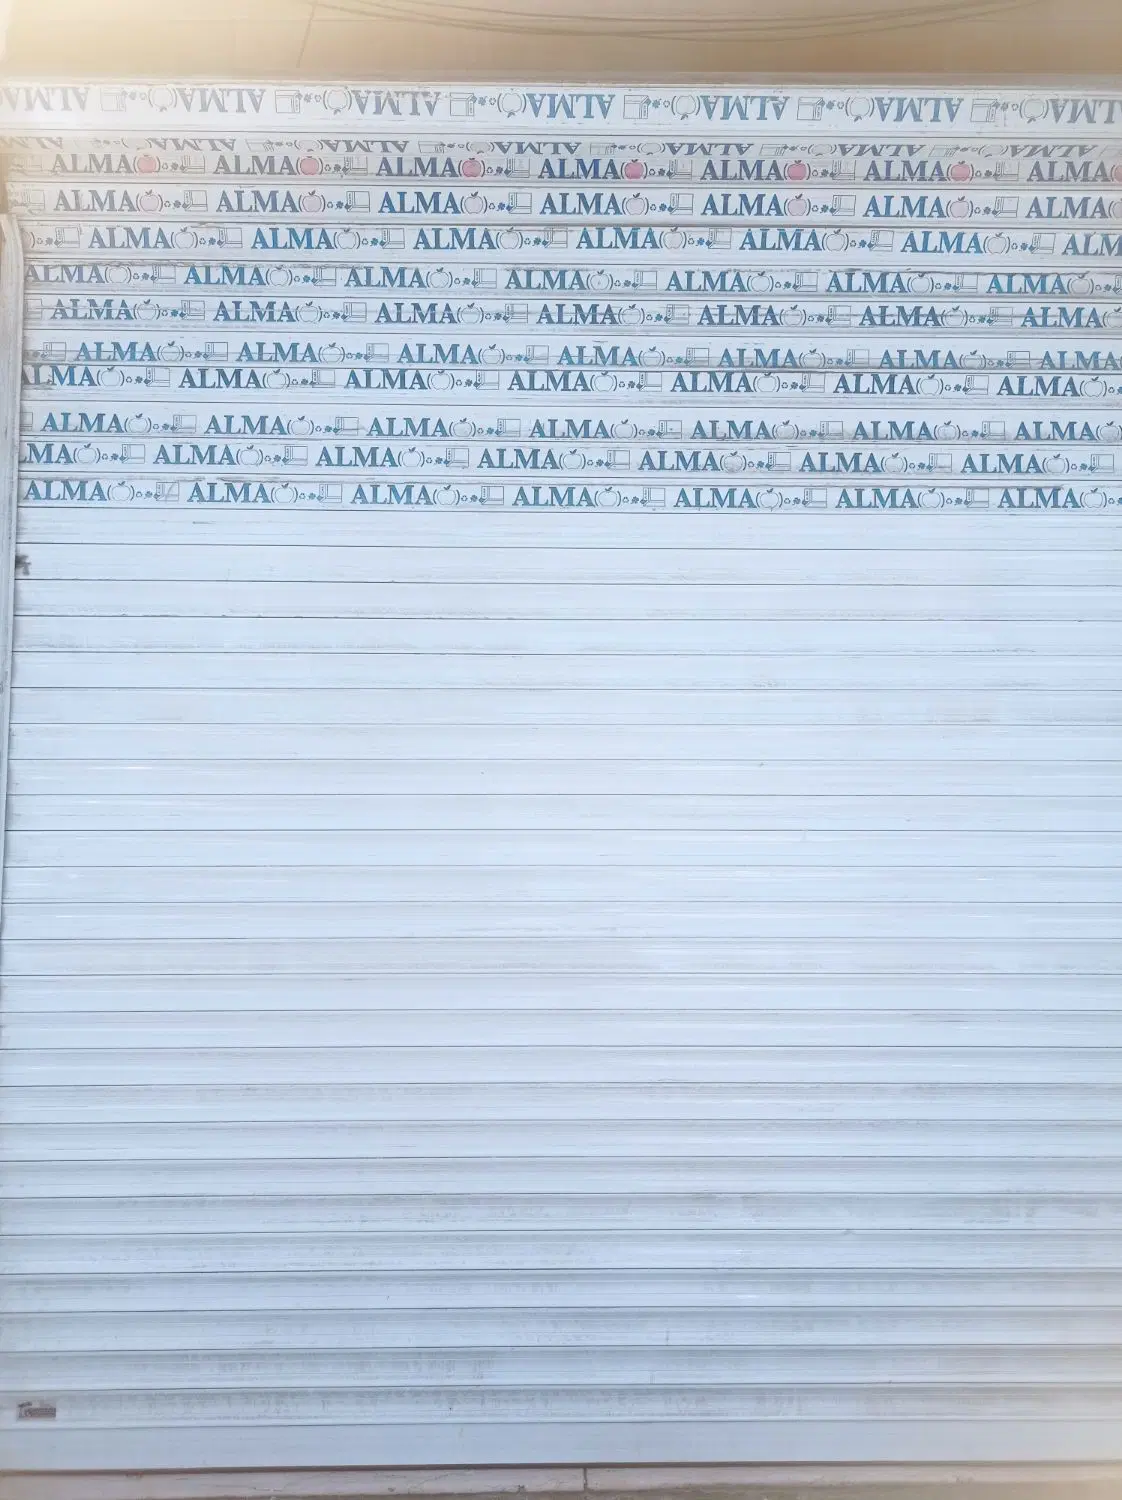 ALMA ALMA ALMA ALMA ALMA ALMA ALMA
ALMA ALMA ALMA ALMA ALMA ALMA ALMA
ALMA ALMA ALMA ALMA ALMA ALMA ALMA
ALMA ALMA ALMA ALMA ALMA ALMA ALMA
ALMA ALMA ALMA ALMA ALMA ALMA ALM
ALMA ALMA ALMA ALMA ALMA ALMA ALMA
ALMA ALMA ALMA ALMA ALMA ALMA ALMA
ALMA ALMA ALMA ALMA ALMA ALMA ALMA
ALMA ALMA ALMA ALMA ALMA ALMA ALMA
ALMA ALMA ALMA ALMA ALMA ALMA ALMA
LMA ALMA ALMA ALMA ALMA ALMA ALMA
ALMA ALMA ALMA ALMA ALMA ALMA ALMA